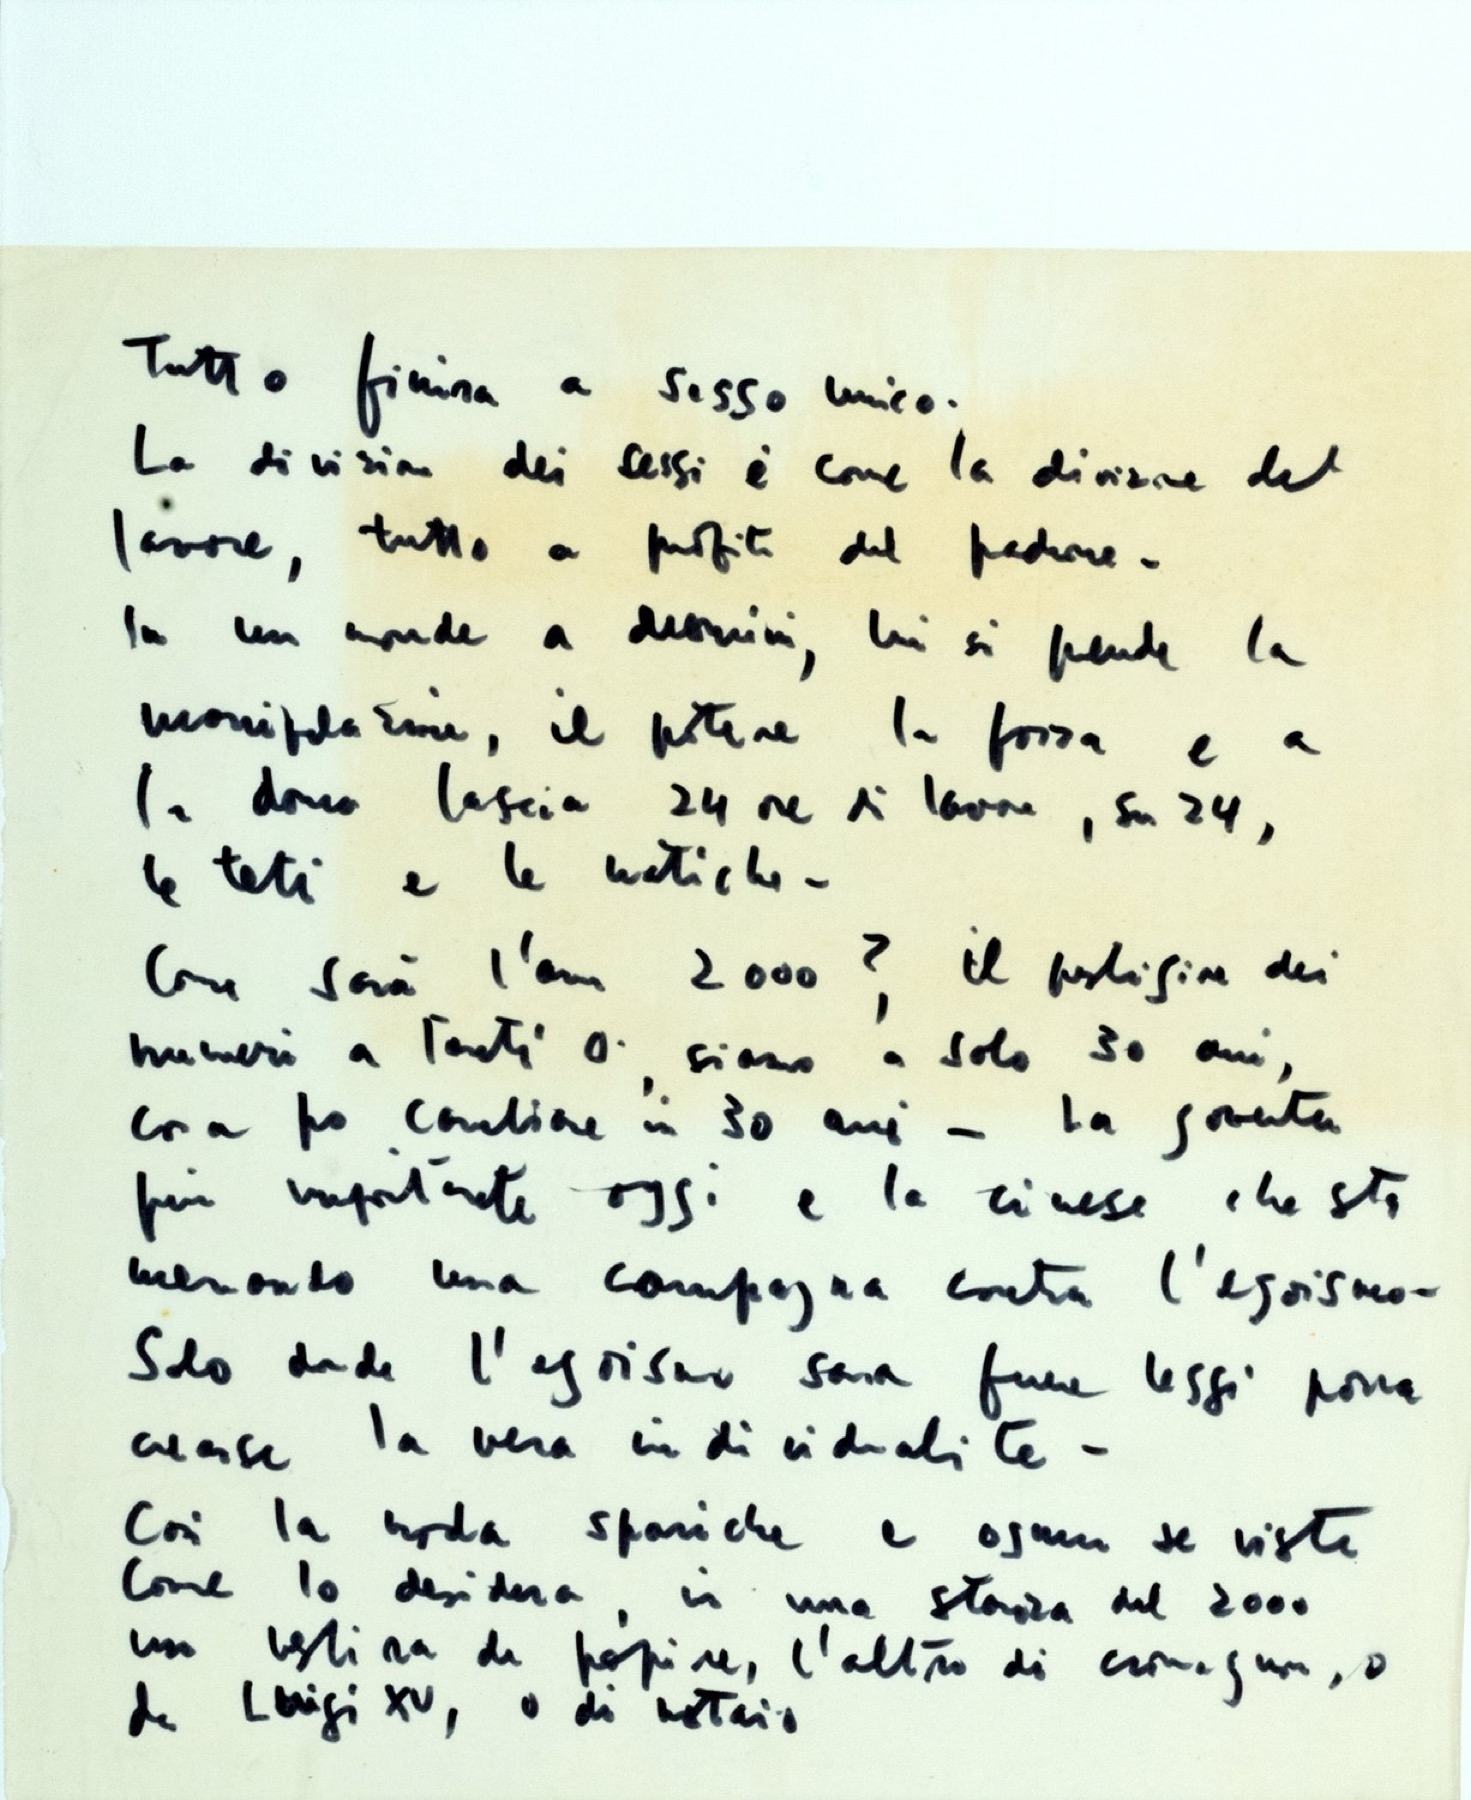 Tutto finira a sesso unico.
La division dei sessi è come la divisione del
lavore, tutto a profiti del padrone -
In un monde a uomini, lui si prende la
manipolazione, il potere la forza e a
la donna lascia 24 ore di lavore, su 24,
le teti e le natiche -
Come sarà l'ann 2000?, il prestigire dei
numeri a tanti 0., siamo a solo 30 anni,
cosa po cambiare in 30 anni - La goventu
piu importante oggi e la cinese che sta
menando una campagna contra l'egoismo -
Solo dande l'egoismo sara fuore leggi porra
crearse la vera individualite -
Cosi la moda spariche e ognun se viste
come lo desidera, in una stanza del 2000
uno vestira da papire, l'altro di cromagnon, o
da Luigi XV, o di notaio